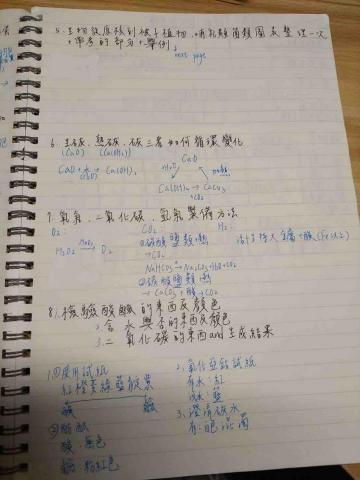 5. 生物從原核到被子植物、哺乳類圖表整理一次
+舉例
next page
6. 生石灰、熟石灰、碳三者如何循環變化
(CaO) (Ca(OH)₂)
CaO+水→Ca(OH)₂
(H₂O)
+H₂O
CaO
Ca(OH)₂ → CaCO₃
+CO₂
7. 氧氣、二氧化碳、氫氣製備方法
O₂: CO₂: H₂:
H₂O₂ → O₂
MnO₂
①碳酸鹽類+熱
→CO₂
NaHCO₃→Na₂CO₃+H₂O+CO₂
②碳酸鹽類+熱
→CaCO₃+酸→CO₂
活性大金屬+酸
8. 1. 檢驗酸鹼的東西及顏色
2. 含水與否的東西及顏色
3. 二氧化碳的東西and生成結果
1. ①廣用試紙
紅橙黃綠藍靛紫
酸 鹼
②酚酞
酸:無色
鹼:粉紅色
2. 氯化亞鈷試紙
有水:紅
沒水:藍
3. 澄清石灰水
有:白色混濁